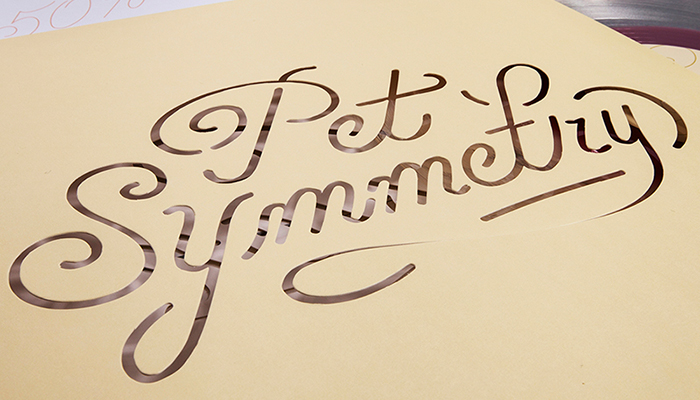 50%
Pet
Symmetry